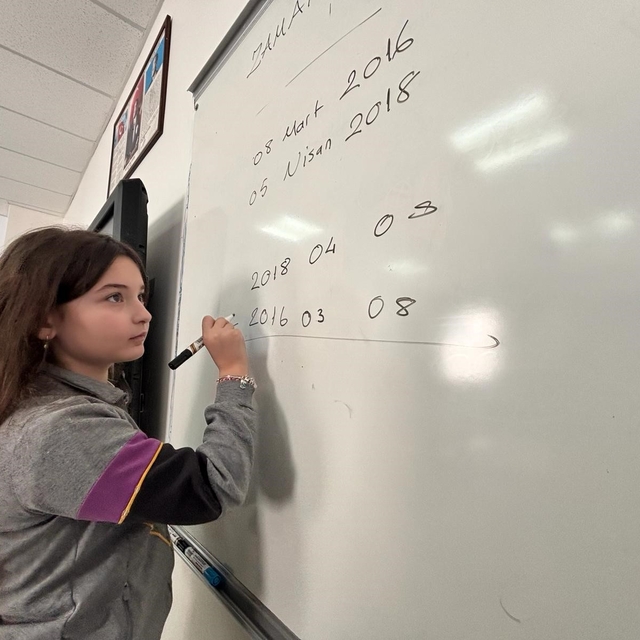 08 Mart 2016
05 Nisan 2018
2018 04 08
2016 03 08